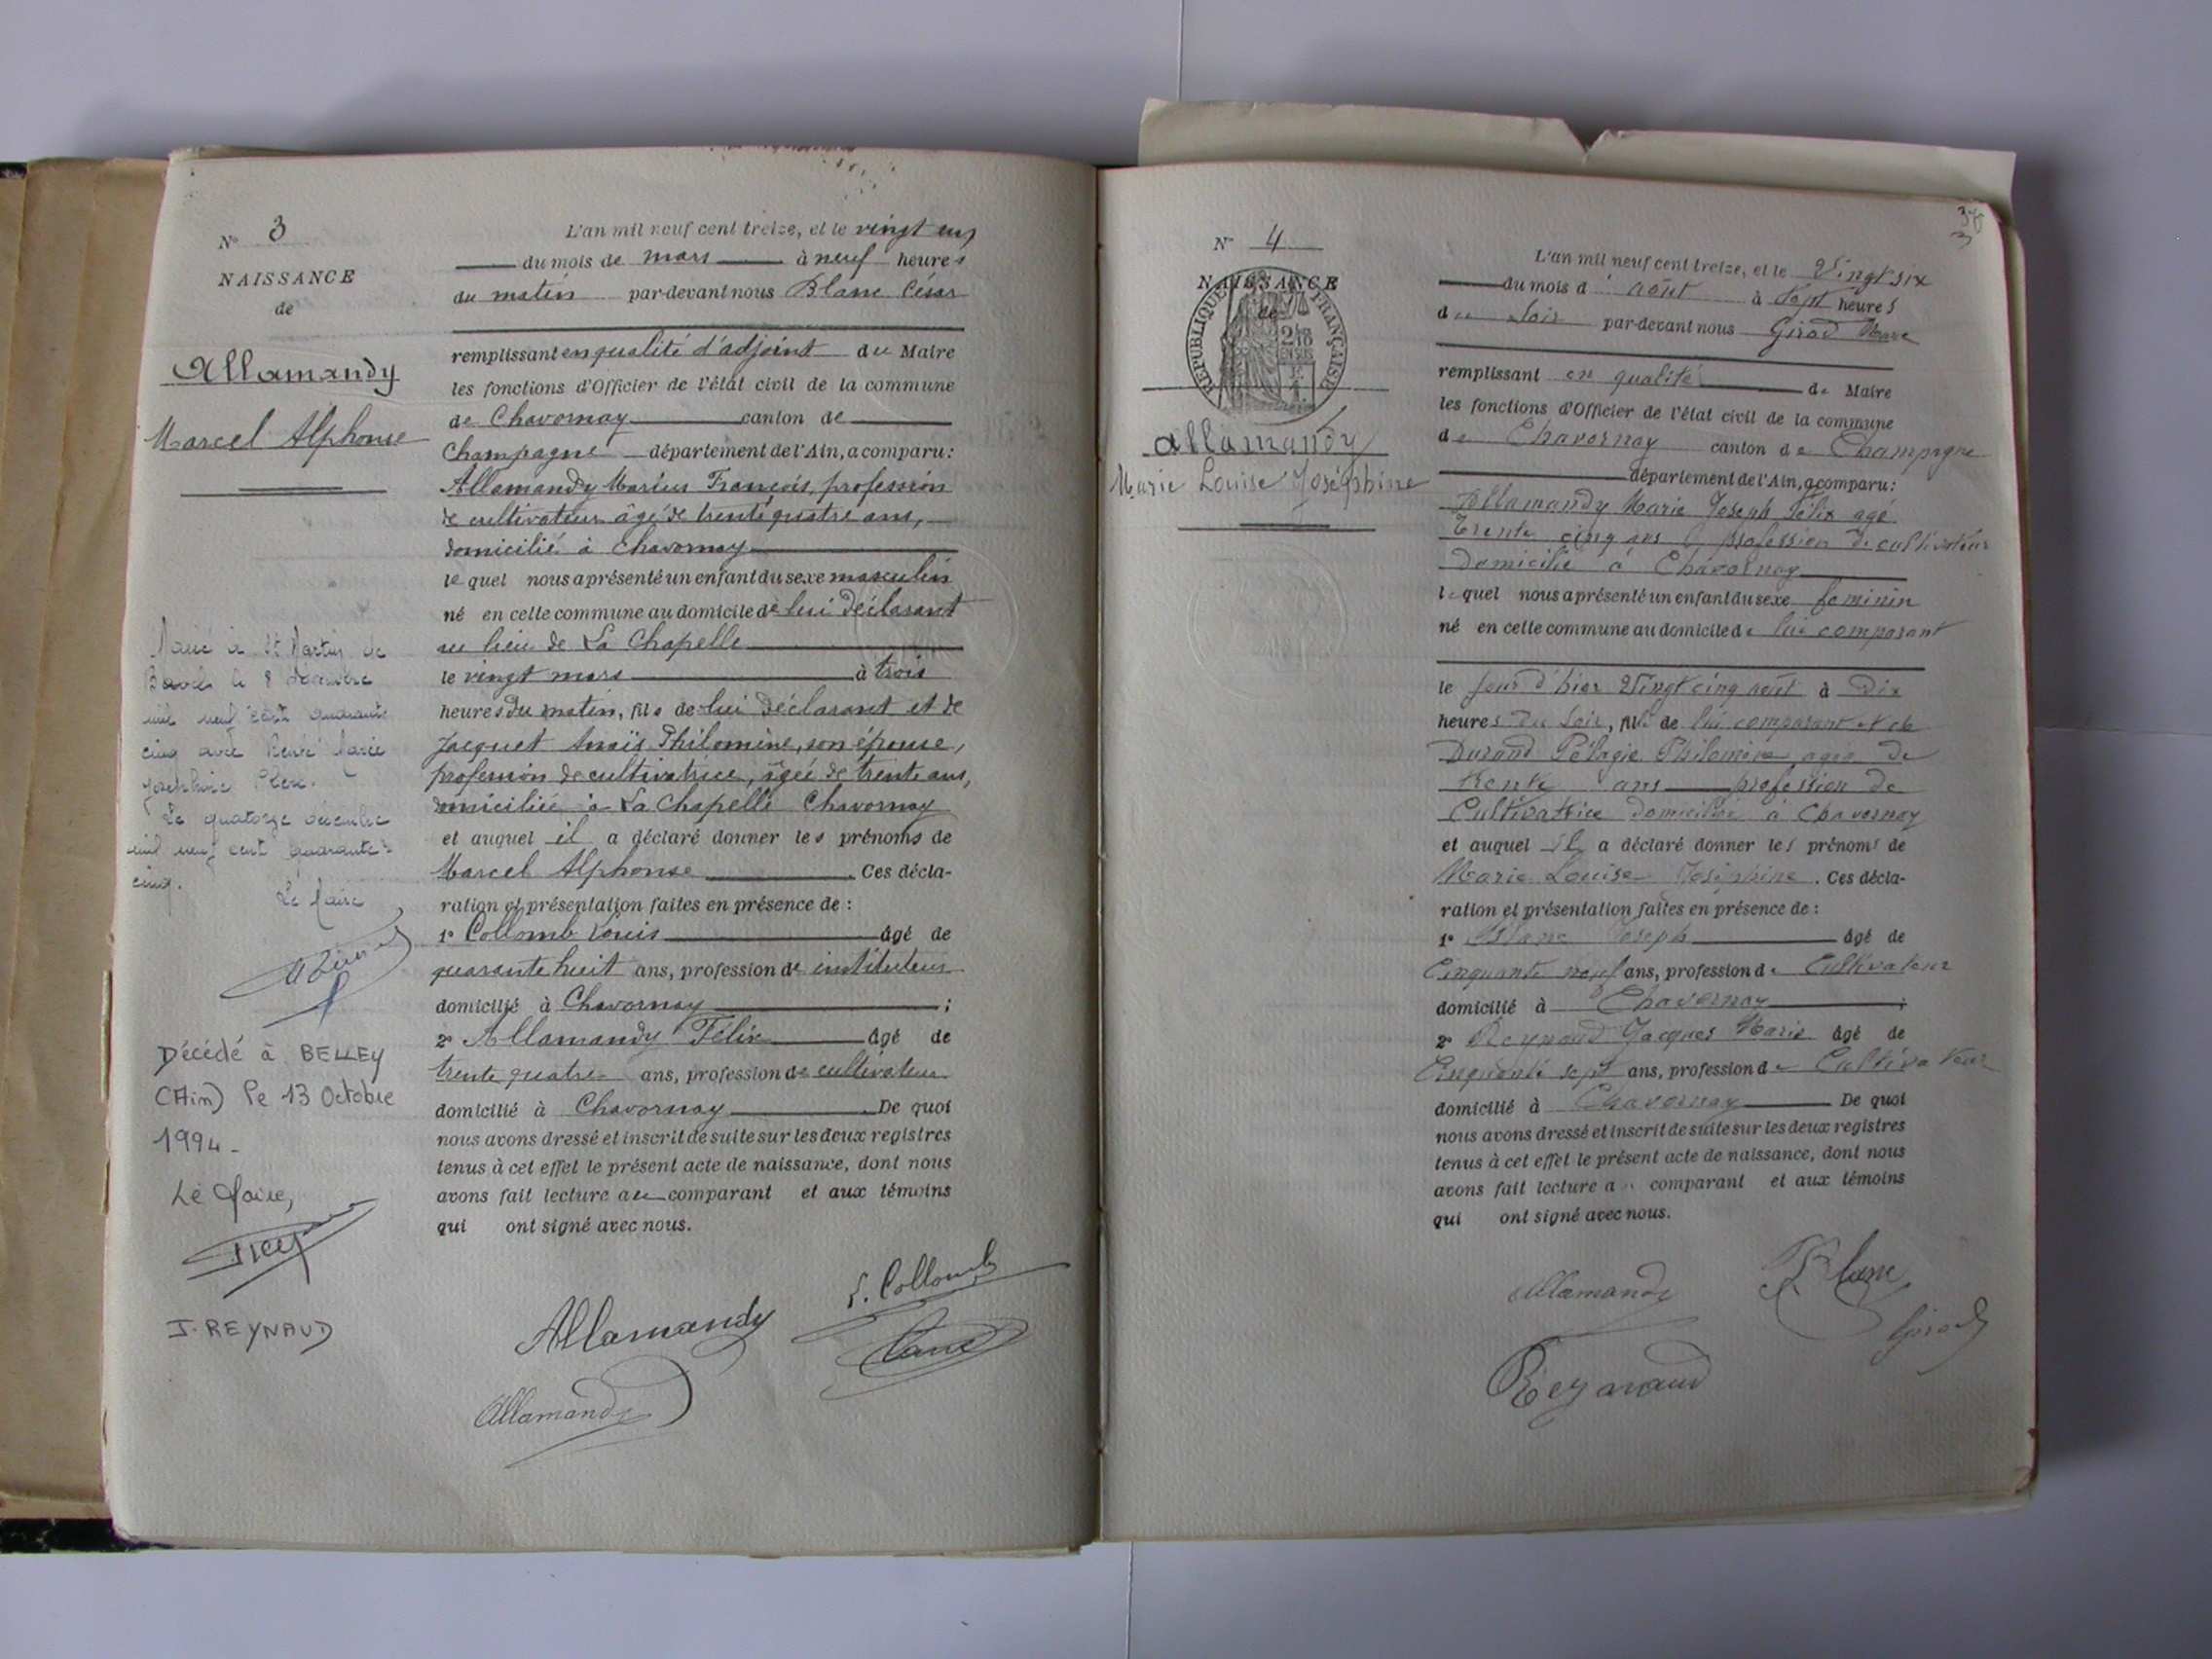 N° 3
NAISSANCE
de
Allamandy
Marcel Alphonse
Marié à St Martin de
Bavel le 8 décembre
mil neuf cent quarante
cinq avec Renée Marie
Joséphine
Le quatorze décembre
mil neuf cent quarante-
cinq.
Le Maire
Décédé à BELLEY
(Ain) le 13 Octobre
1994 -
Le Maire,
J. REYNAUD
L'an mil neuf cent treize, et le vingt un
du mois de mars à neuf heures
du matin par-devant nous Blanc César
remplissant en qualité d'adjoint du Maire
les fonctions d'Officier de l'état civil de la commune
de Chavornay canton de
Champagne département de l'Ain, a comparu :
Allamandy Marius François, profession
de cultivateur âgé de trente quatre ans,
domicilié à Chavornay
lequel nous a présenté un enfant du sexe masculin
né en cette commune au domicile de lui déclarant
au lieu de La Chapelle
le vingt mars à trois
heures du matin, fils de lui déclarant et de
Jacquet Anaïs Philomène, son épouse,
profession de cultivatrice, âgée de trente ans,
domiciliée à La Chapelle Chavornay
et auquel il a déclaré donner les prénoms de
Marcel Alphonse . Ces décla-
ration et présentation faites en présence de :
1° Collomb Louis âgé de
quarante huit ans, profession de instituteur
domicilié à Chavornay ;
2° Allamandy Félix âgé de
trente quatre ans, profession de cultivateur
domicilié à Chavornay . De quoi
nous avons dressé et inscrit de suite sur les deux registres
tenus à cet effet le présent acte de naissance, dont nous
avons fait lecture au comparant et aux témoins
qui ont signé avec nous.
L. Collomb
Allamandy
Allamandy
N° 4
NAISSANCE
de
RÉPUBLIQUE FRANÇAISE
Allamandy
Marie Louise Joséphine
L'an mil neuf cent treize, et le Vingt six
du mois d'août à Sept heures
du soir par-devant nous Girod
remplissant en qualité de Maire
les fonctions d'Officier de l'état civil de la commune
de Chavornay canton de Champagne
département de l'Ain, a comparu :
Allamandy Marie Joseph Félix agé
Trente cinq ans profession de cultivateur
Domicilié à Chavornay
lequel nous a présenté un enfant du sexe feminin
né en cette commune au domicile de lui comparant
le jour d'hier Vingt cinq août à Dix
heures du Soir, fille de lui comparant et de
Durand Pélagie Philomène agée de
trente ans profession de
Cultivatrice Domiciliée à Chavornay
et auquel il a déclaré donner les prénoms de
Marie Louise Joséphine . Ces décla-
ration et présentation faites en présence de :
1° Blanc Joseph âgé de
Cinquante neuf ans, profession de Cultivateur
domicilié à Chavornay ;
2° Reynaud Jacques Marie âgé de
Cinquante sept ans, profession de Cultivateur
domicilié à Chavornay De quoi
nous avons dressé et inscrit de suite sur les deux registres
tenus à cet effet le présent acte de naissance, dont nous
avons fait lecture a comparant et aux témoins
qui ont signé avec nous.
Allamandy
Blanc
Girod
Reynaud